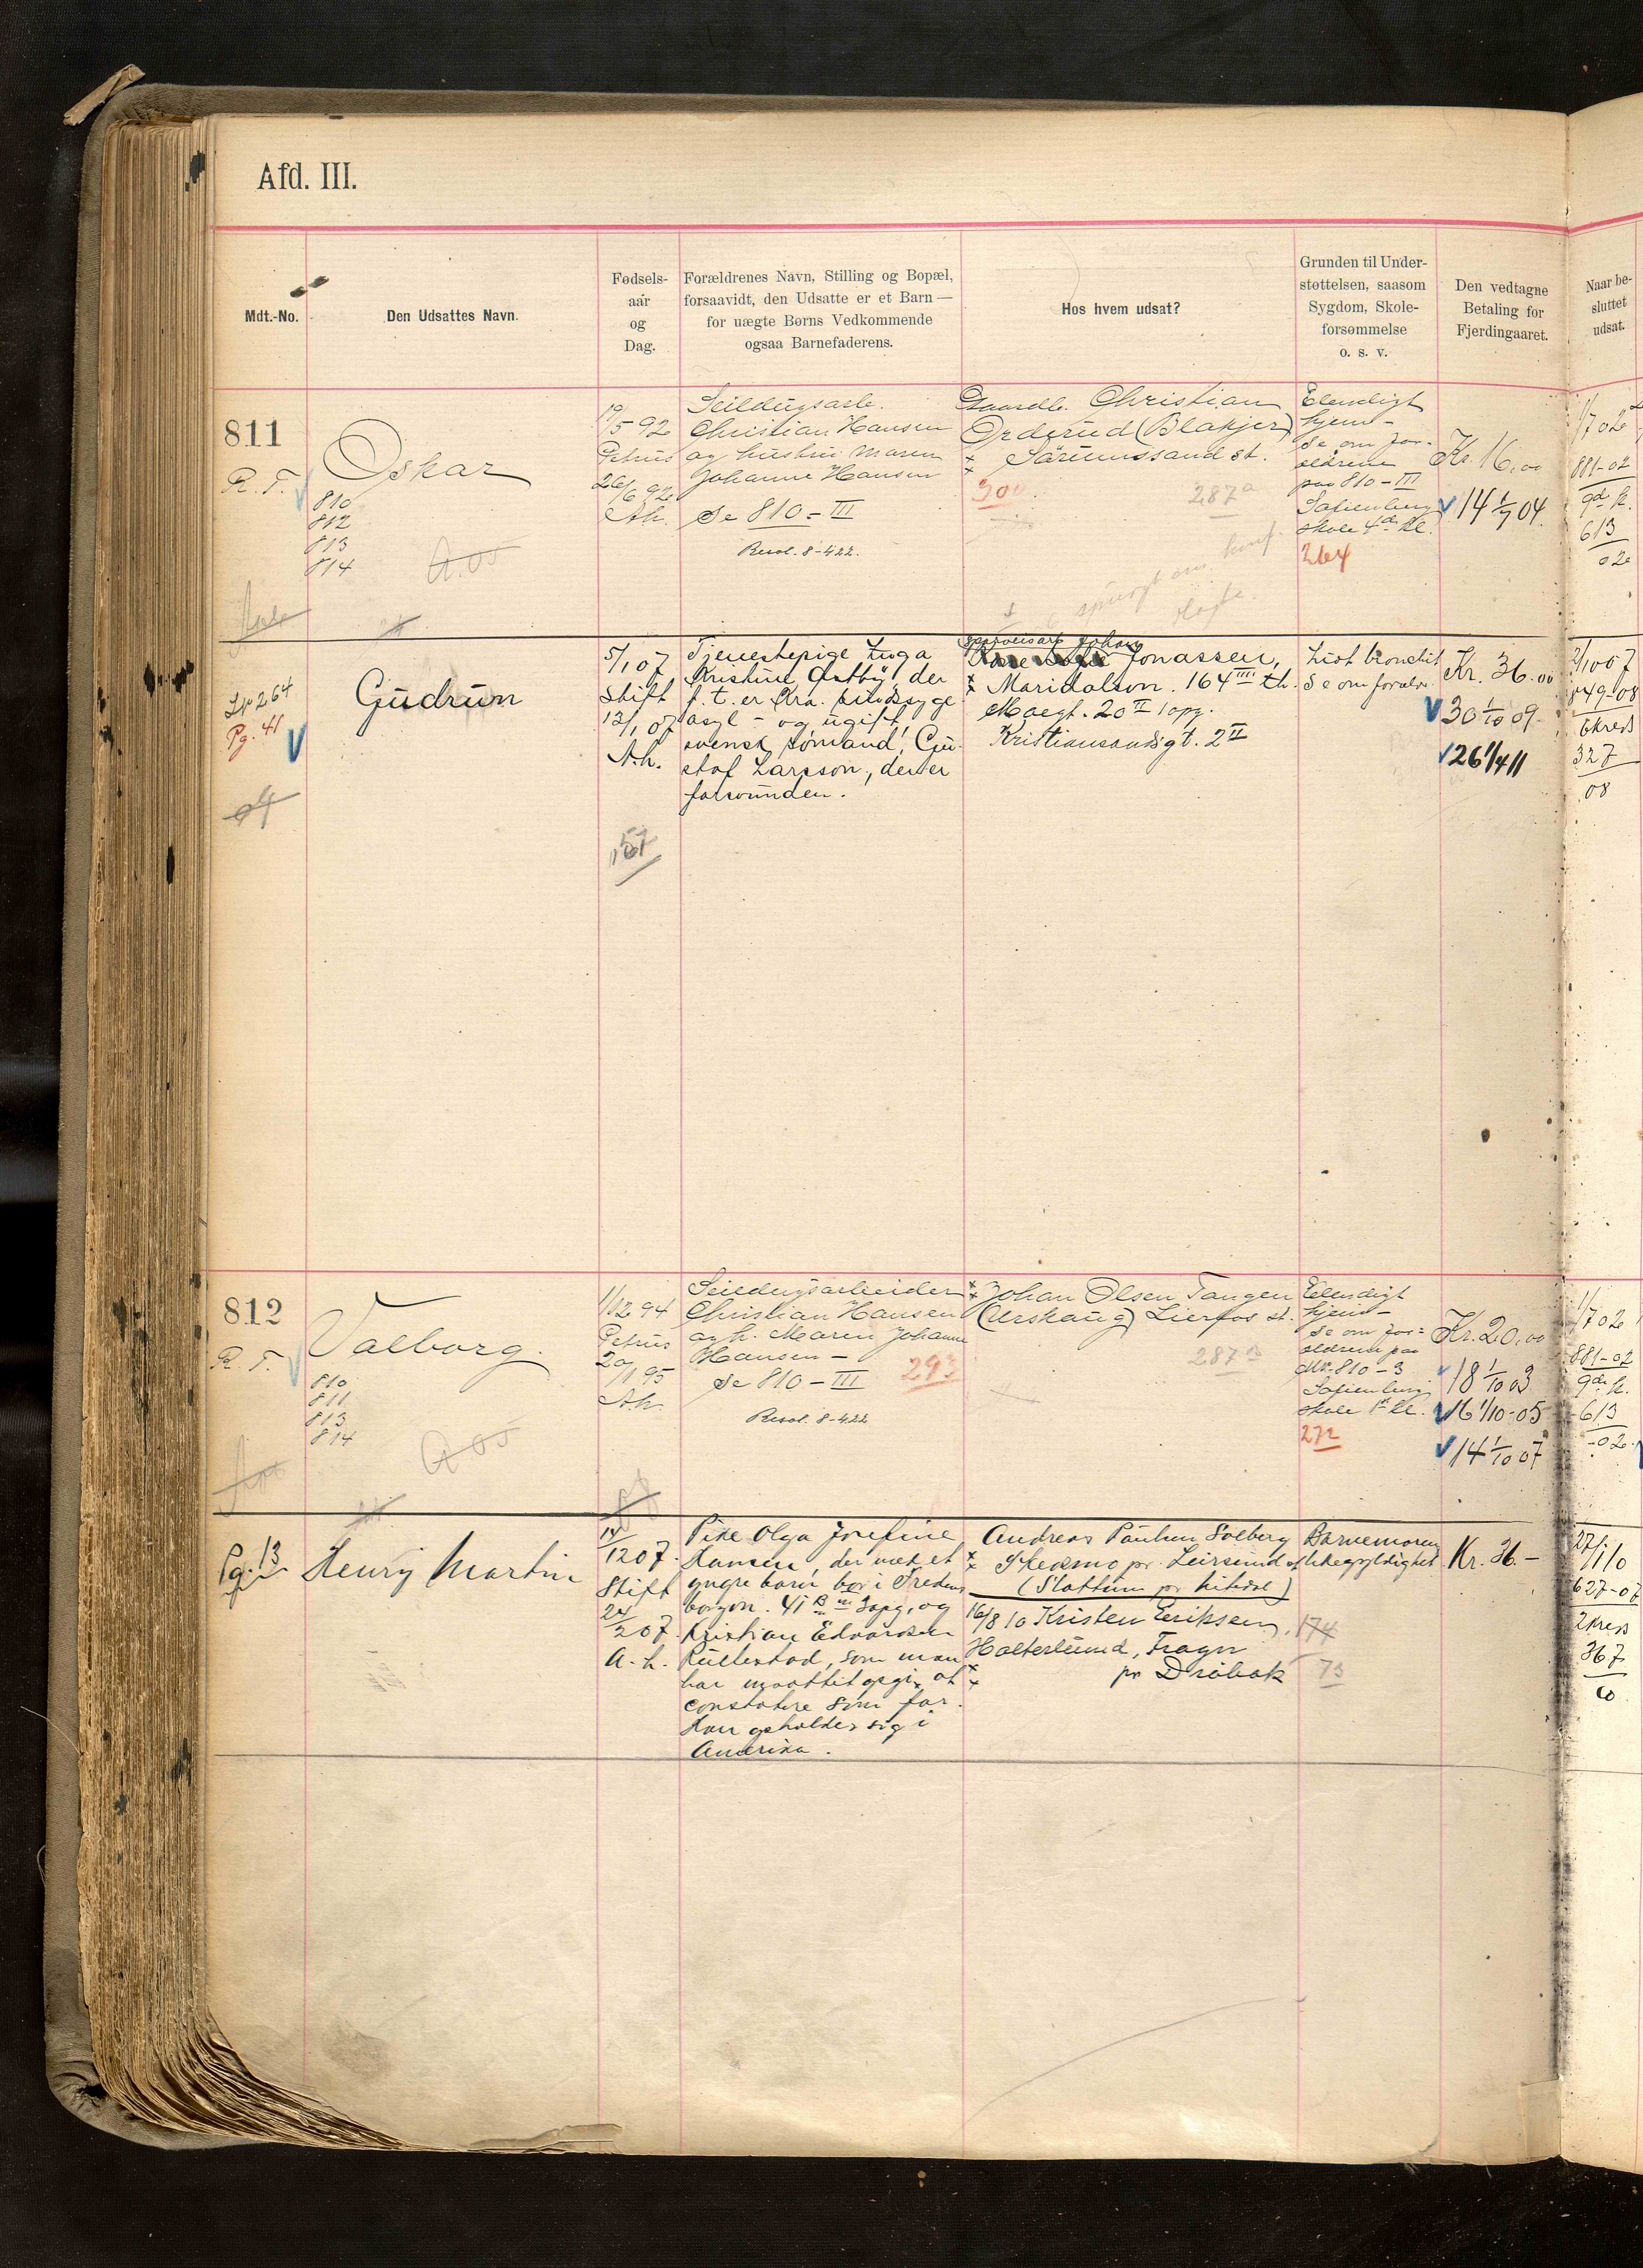 Afd. III.
Mdt.-No.
Den Udsattes Navn.
Fødsels-
aar
og
Dag.
Forældrenes Navn, Stilling og Bopæl,
forsaavidt, den Udsatte er et Barn —
for uægte Børns Vedkommende
ogsaa Barnefaderens.
Hos hvem udsat?
Grunden til Under-
støttelsen, saasom
Sygdom, Skole-
forsømmelse
o. s. v.
Den vedtagne
Betaling for
Fjerdingaaret.
Naar be-
sluttet
udsat.
811
R. T.
Oskar
810
812
813
814
19/5 92
Petrus
26/6 92
A.h.
Seildugsarb.
Christian Hansen
og hustru Maren
Johanne Hansen
Se 810 - III
Besol. 8-422.
Gaardb. Christian
Orderud (Blakjer)
Sørumssand st.
300
287a
spurgt om konf.
Elendigt
hjem -
Se om for-
ældrene
paa 810 - III
Sofienberg
skole 4de kl.
264
Kr. 16.00
14 1/7 04.
1/7 02
881-02
9de k.
613
02
Lp 264
Pg. 41
Gudrun
5/1 07
Stift
13/1 07
A.h.
157
Tjenestepige Inga
Kristine Østby, der
f. t. er Kra. sindssyge
asyl - og ugift
svensk sømand, Gu-
staf Larsson, der er
forsvunden.
Sporveisarb. Johan
Jonassen,
Maridalsvn. 164 III th.
Maegt. 20 II opg.
Kristiansandsgt. 2 II
Se om forældr.
Kr. 36.00
30 1/10 09.
26 1/4 11
849-08
6kreds
327
08
812
R. T.
Valborg.
810
811
813
814
1/12 94
Petrus
20/1 95
A.h.
Seildugsarbeider
Christian Hansen
og h. Maren Johanne
Hansen -
Se 810 - III
293
Besol. 8-422
Johan Olsen Tangen
(Urskaug) Lierfos st.
287B
Elendigt
hjem -
Se om for-
ældrene paa
No. 810 - 3
Sofienberg
skole 1ste kl.
272
Kr. 20.00
18 1/10 03
16 1/10-05
14 1/10 07
1/7 02
881-02
9de k.
613
-02.
Pg. 13
Henry Martin
14/12 07.
Stift
24/2 07.
A.h.
Pike Olga Josefine
Hansen, der med et
yngre barn bor i Fredens-
borgvn. 41 B III opg, og
Kristian Edvardsen
Rullestad, som man
har maattet opgi at
constatere som far.
Han opholder sig i
Amerika.
Andreas Paulsen Solberg
Skedsmo pr. Leirsund st
(Slattum pr Nitedal)
16/8 10 Kristen Eriksen,
Holterlund, Frogn
pr Drøbak
Barnemoren
likegyldighet
174
73
Kr. 36.-
27/1 10
627-07
2kreds
367
10